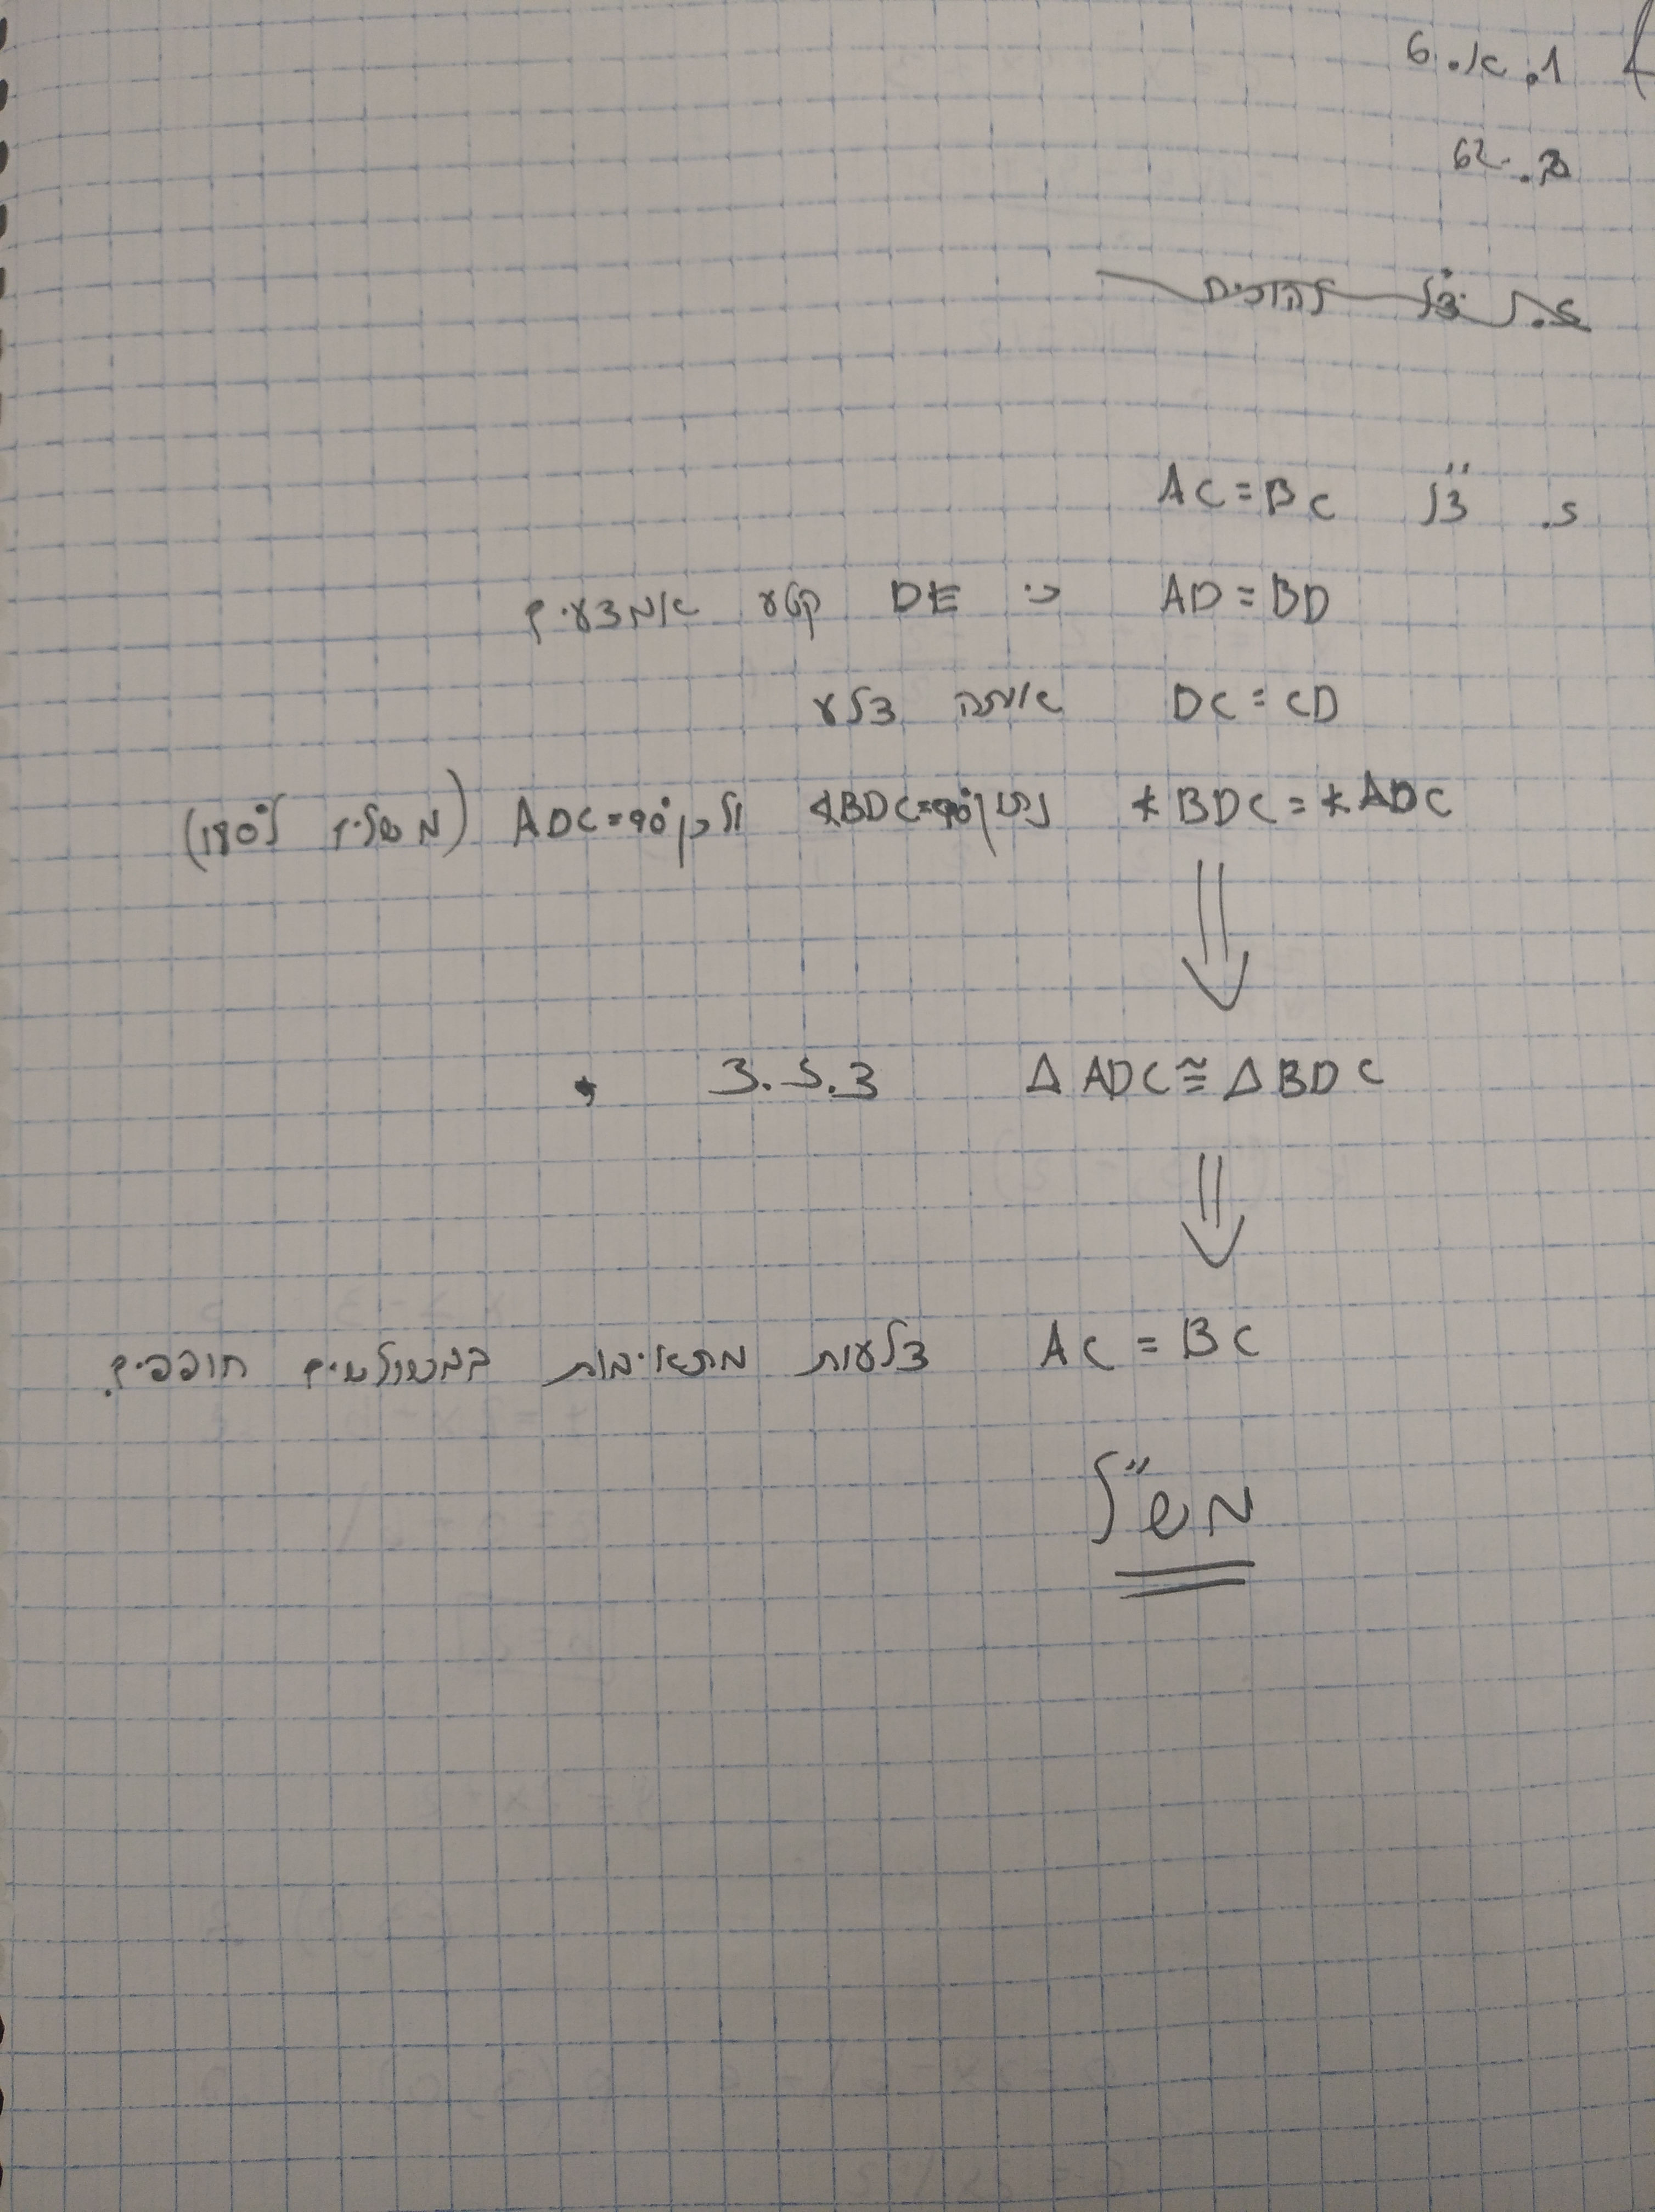 1. א. 6
ב. 62
צ"ל להוכיח
ג. צ"ל AC = BC
AD = BD כי DE קטע אמצעים
DC = CD אותה צלע
∢BDC = ∢ADC נתון ∢BDC=90° ולכן ADC=90° (משלים ל180°)
ΔADC ≅ ΔBDC צ.ז.צ
AC = BC צלעות מתאימות במשולשים חופפים.
מש"ל